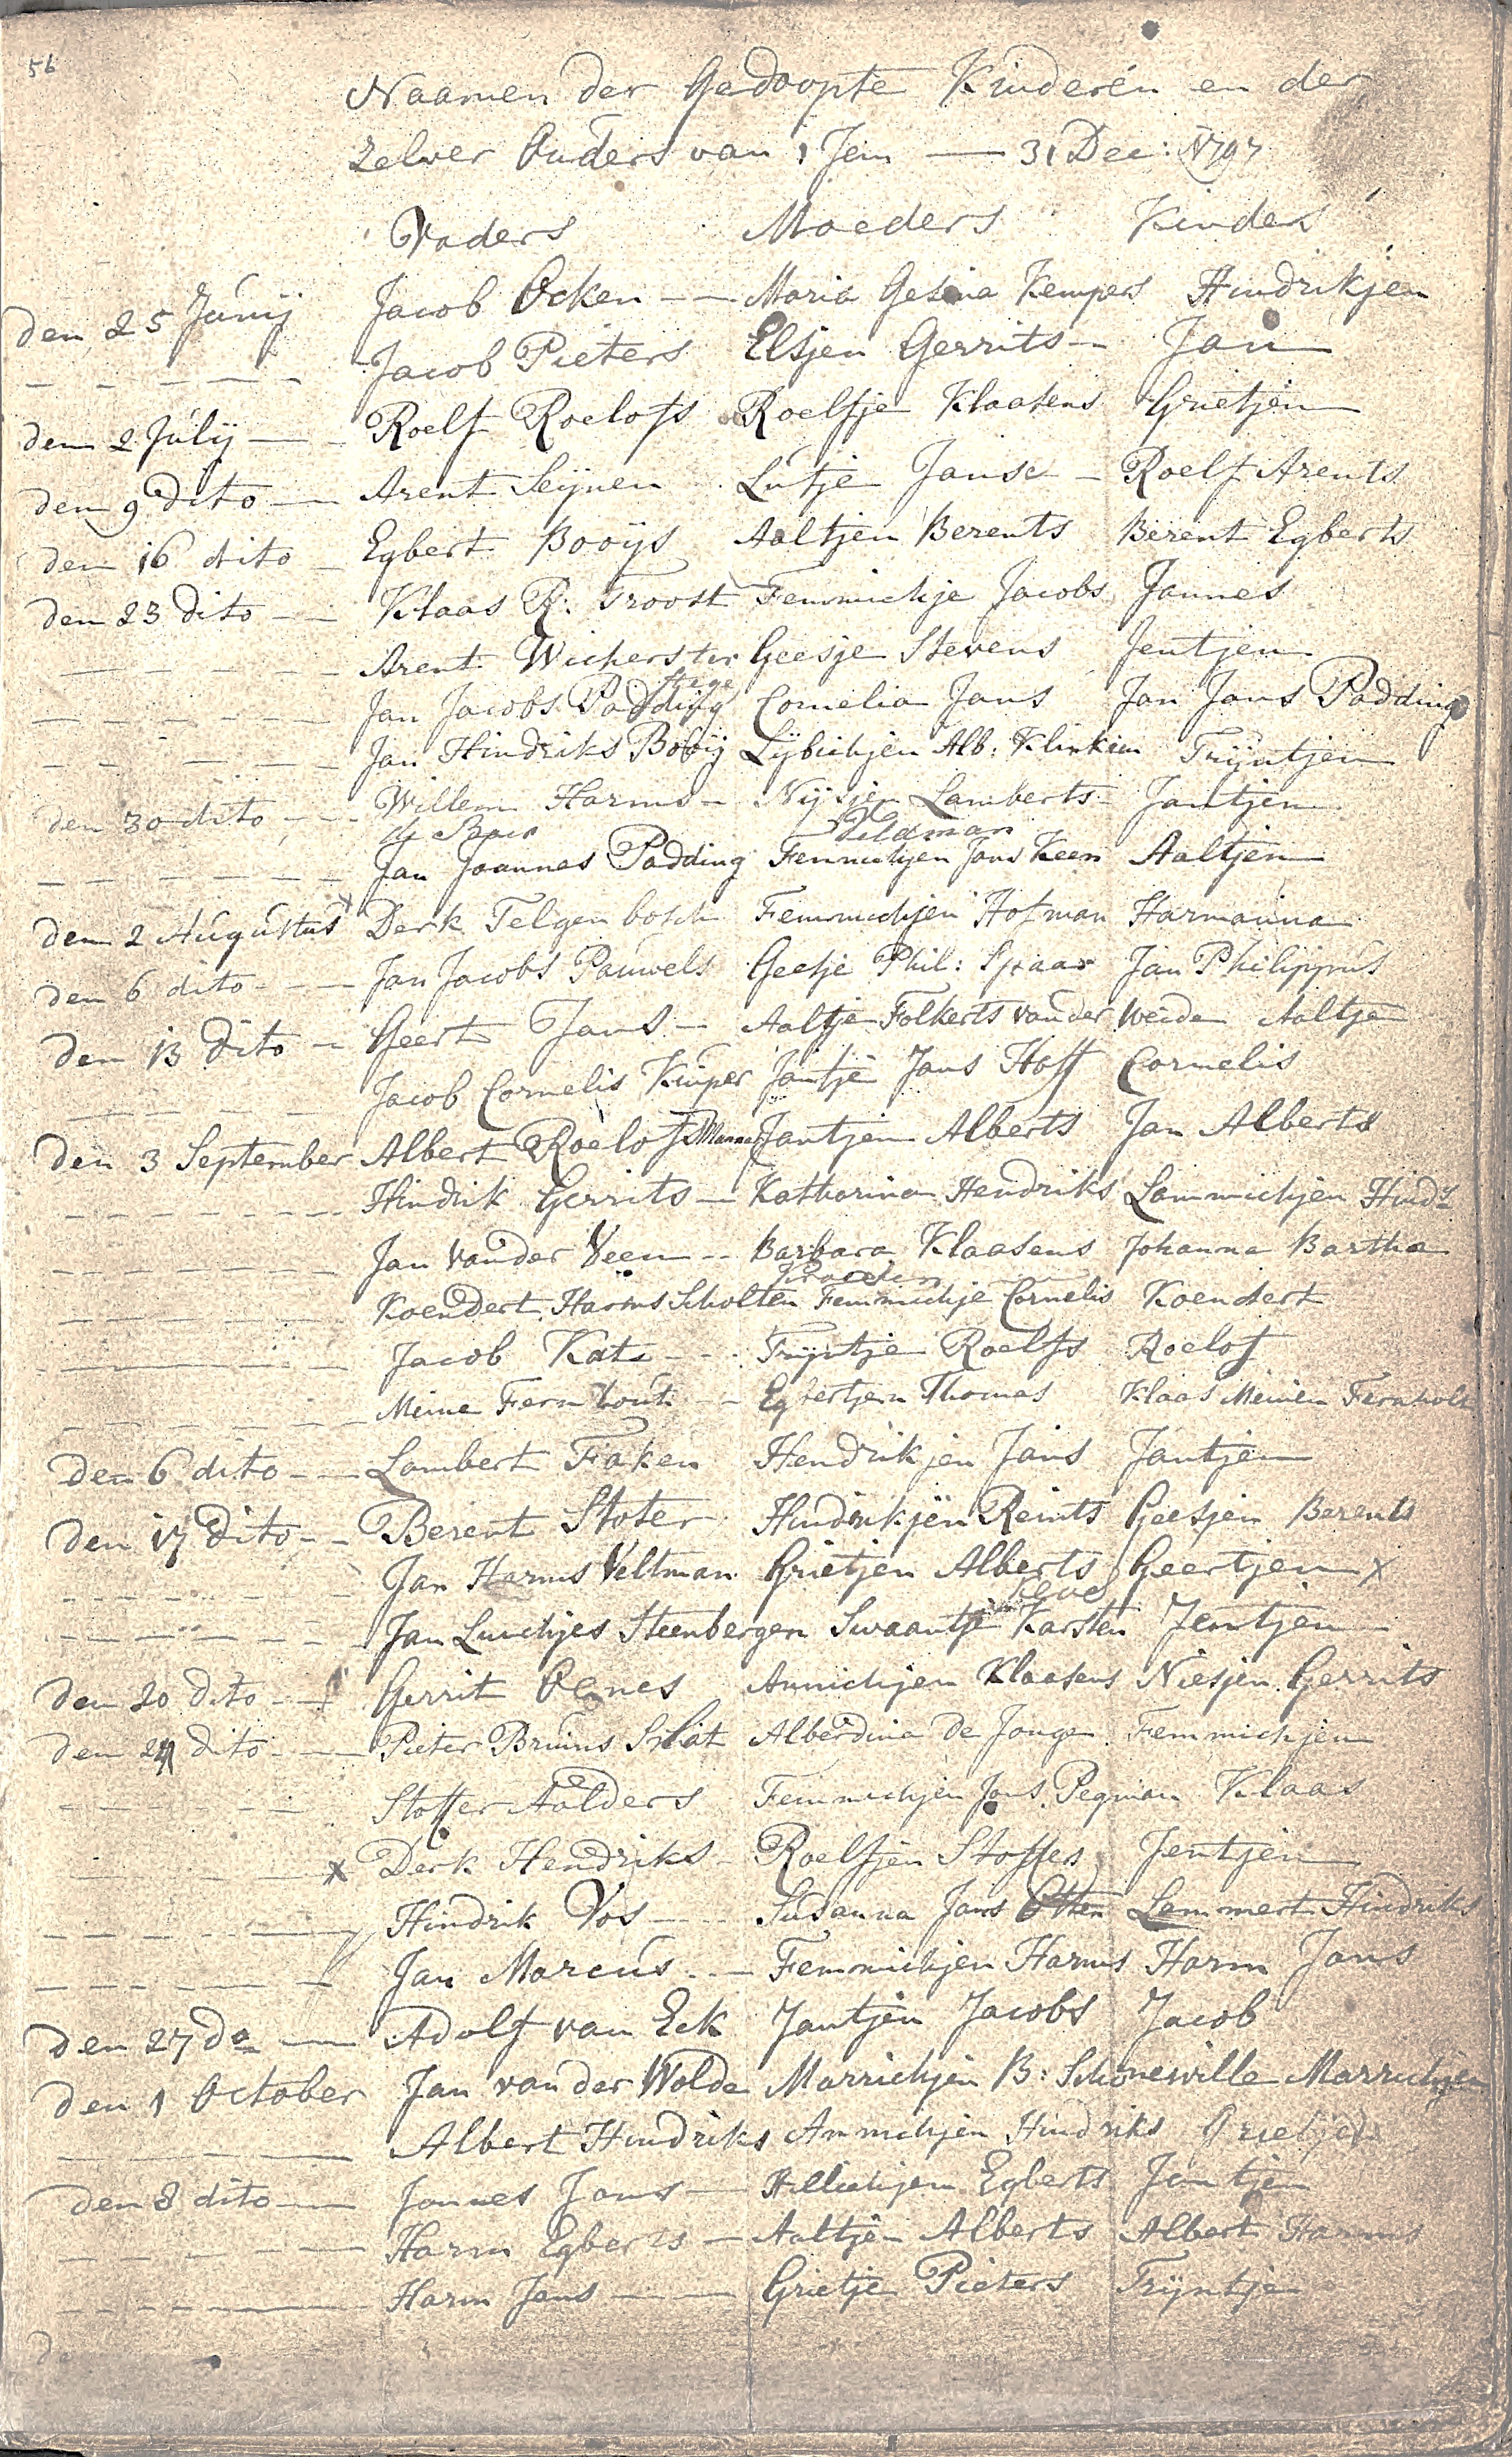 56
Naamen der Gedoopte Kinderen en der
zelver Ouders van 1 Jen — 31 Dec: 1797
Vaders Moeders Kinders
den 25 Junij Jacob Ocken -- Maria Gesina Kempers Hindrikjen
- - - - - Jacob Pieters Elsjen Gerrits - Jan
den 2 Julij - Roelf Roelofs Roelfje Klaasens Grietjen
den 9 dito - Arent Seijnen Lutje Janse - Roelf Arents
den 16 dito - Egbert Booijs Aaltjen Berents Berent Egberts
den 23 dito - Klaas R: Troost Femmichje Jacobs Jannes
- - - - - Arent Wicherster Geesje Stevens Jentjen
stege
- - - - - Jan Jacobs Padding Cornelia Jans Jan Jans Padding
- - - - - Jan Hindriks Booij Lijbichjen Alb: Klinkien Trijntjen
den 30 dito - Willem Harms - Nijsjen Lamberts - Jantjen
de Boer Veldman
- - - - - Jan Joannes Padding Femmichjen Jans Keen Aaltjen
den 2 Augustus x Derk Telgenbosch Femmichjen Hofman Harmanna
den 6 dito - Jan Jacobs Pauwels Geesje Phil: Spaar Jan Philippus
den 13 dito - Geert Jans - Aaltje Folkerts van der Weide Aaltje
- - - - - Jacob Cornelis Kuiper Jantje Jans Hoff Cornelis
den 3 September Albert Roelofs Mannes Jantjen Alberts Jan Alberts
- - - - - Hindrik Gerrits - Katharina Hendriks Lammichjen Hinds
- - - - - Jan van der Veen - Barbara Klaasens Johanna Bartha
- - - - - Koendert Harms Scholten Femmichje Cornelis Koendert
- - - - - Jacob Kats - - Trijntje Roelfs Roelof
- - - - - Meine Fernhout - Egbertjen Thomas Klaas Meinen Fernholt
den 6 dito - Lambert Faken Hendrikjen Jans Jantjen
den 17 dito - Berent Stoter Hindrikjen Reints Geesjen Berents
- - - - - Jan Harms Veltman Grietjen Alberts Geertjen x
Keve
- - - - - Jan Luichjes Steenbergen Swaantje Karsten Jentjen
den 20 dito - Gerrit Oenes Annichjen Klaasens Niesjen Gerrits
den 24 dito - Pieter Bruins Slot Alberdina de Jonge Femmichjen
- - - - - Stoffer Aalders Femmichjen Jans Pegman Klaas
- - - - - x Derk Hendriks - Roelfjen Stoffes Jentjen
- - - - - Hindrik Vos - Susanna Jans Otten Lammert Hindriks
- - - - - Jan Marcus - Femmichjen Harms Harm Jans
den 27 do - Adolf van Eck Jantjen Jacobs Jacob
den 1 October Jan van der Wolde Marrichjen B: Schonewille Marrichjen
- - - - - Albert Hindriks Annichjen Hindriks Grietjen
den 8 dito - Jannes Jans - Hillichjen Egberts Jantjen
- - - - - Harm Egberts - Aaltjen Alberts Albert Harms
- - - - - Harm Jans - Grietje Pieters Trijntje
de